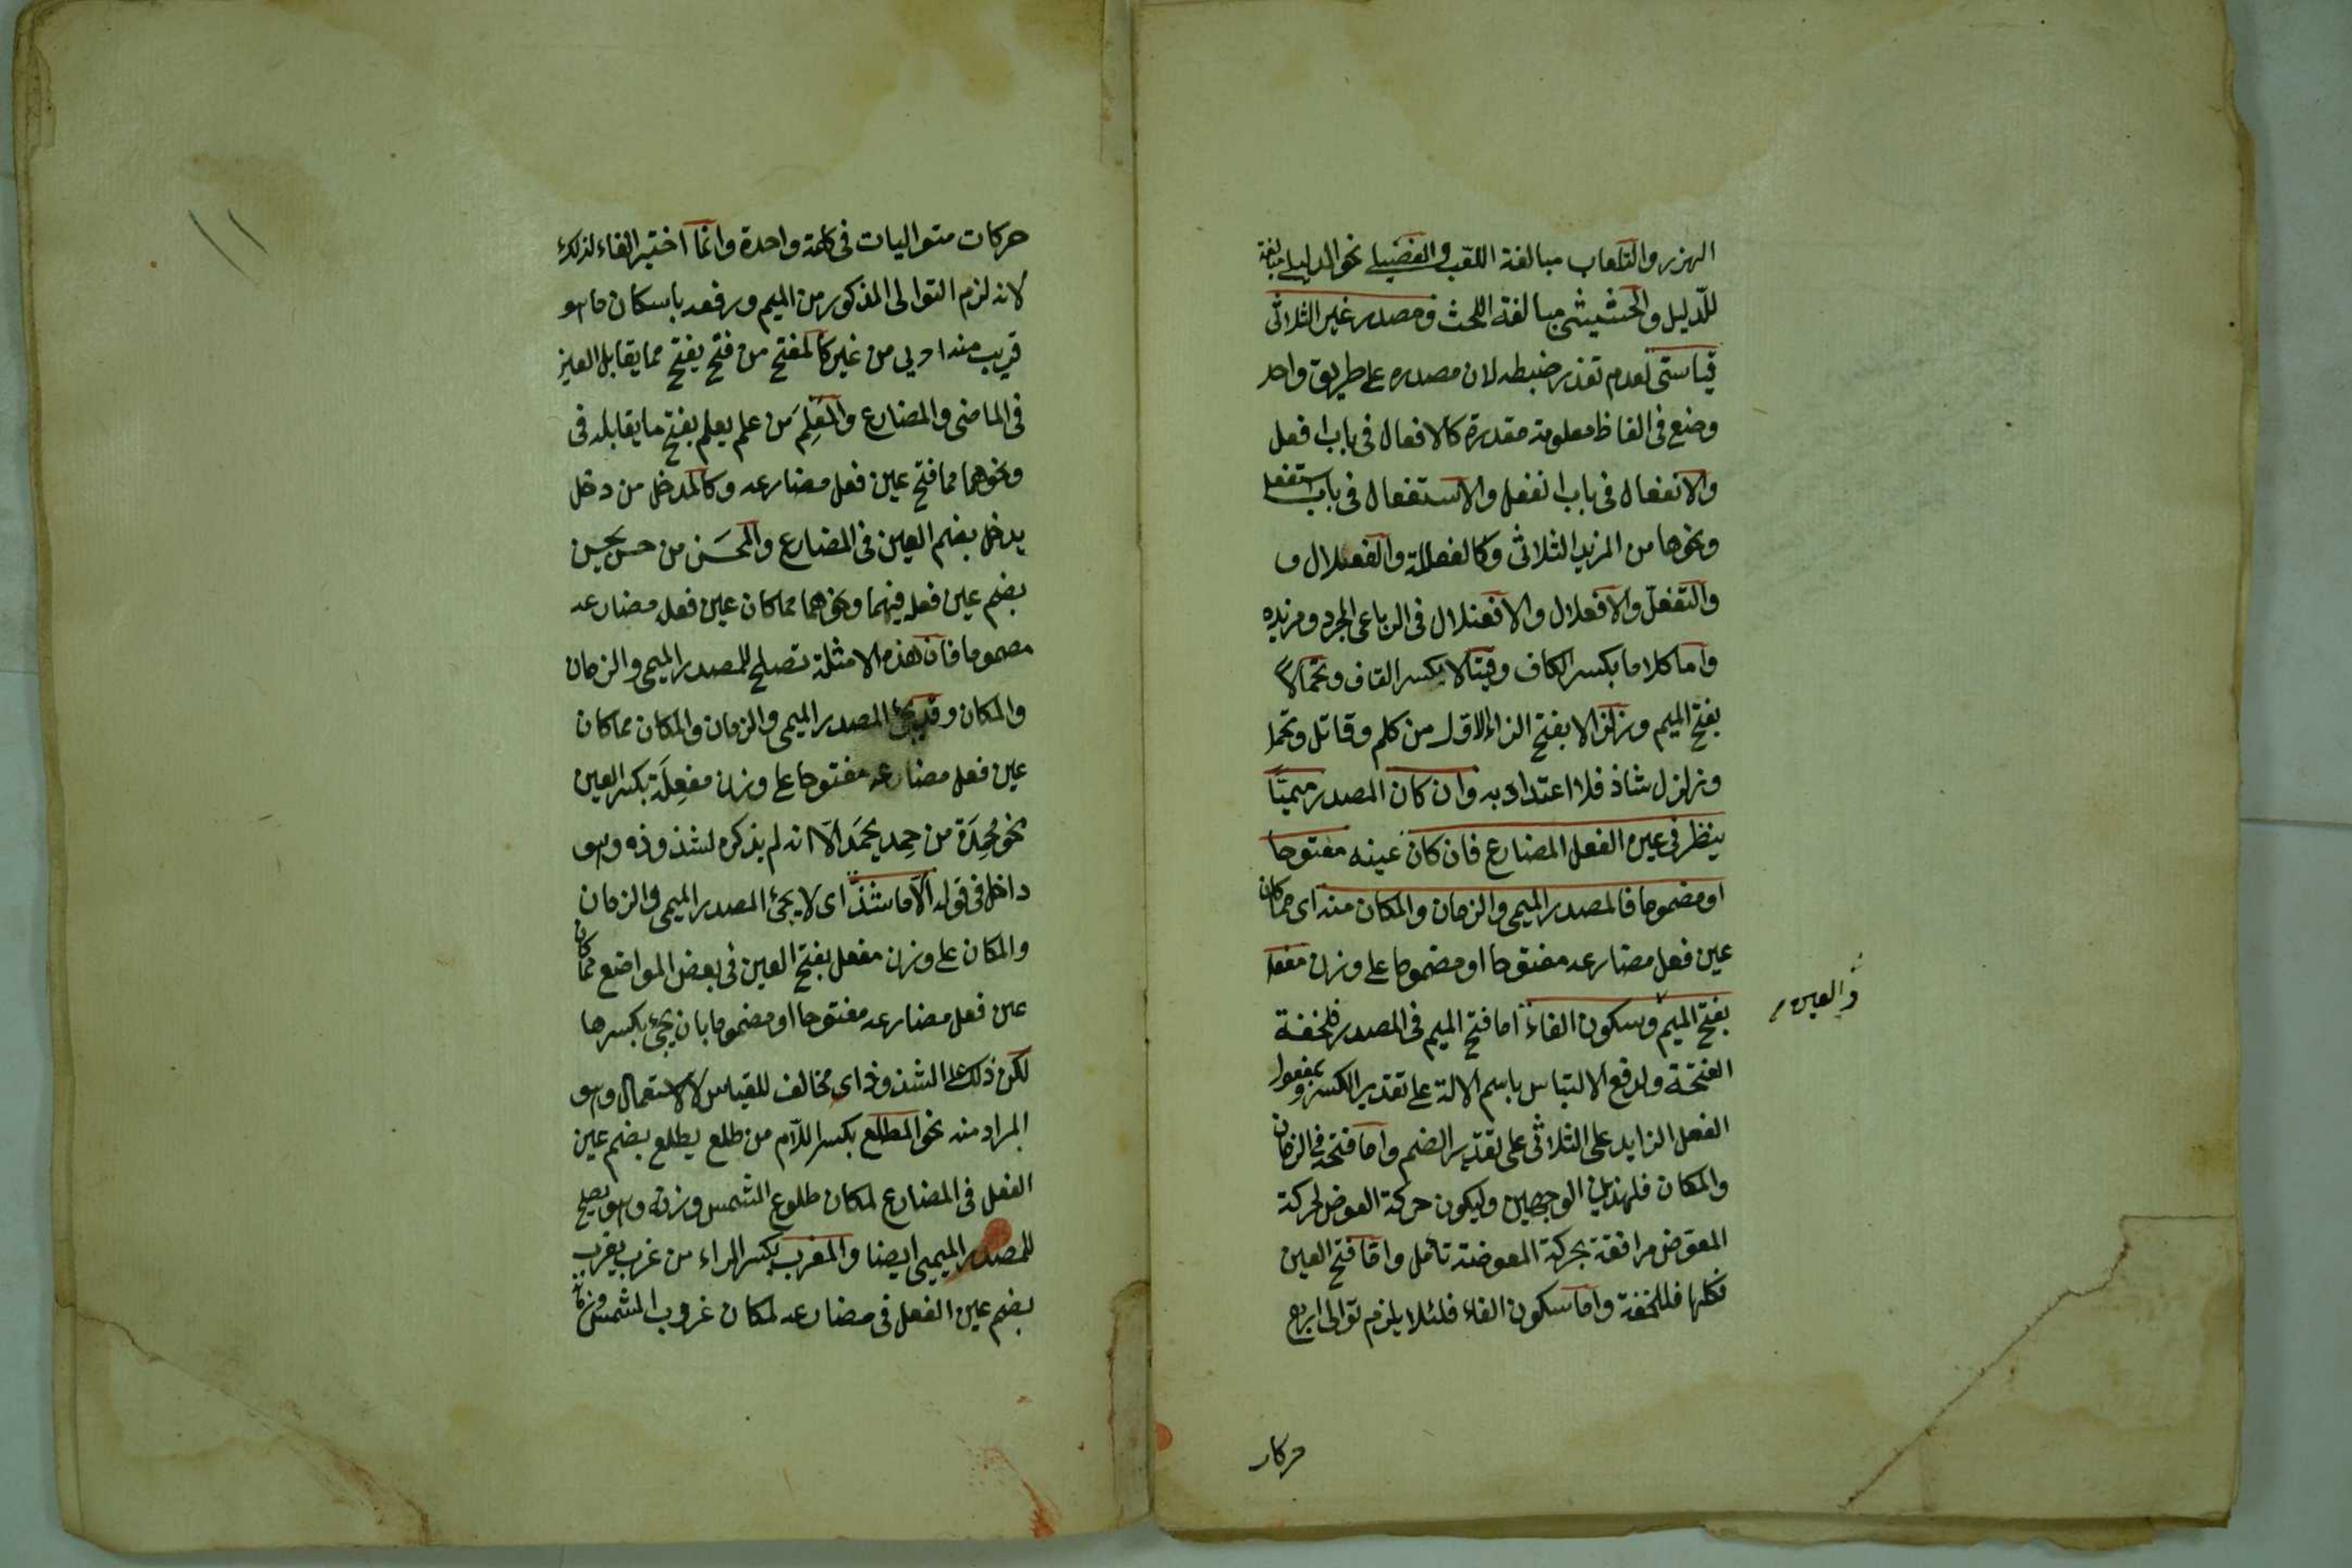 الهزر والتلعاب مبالغة اللعب والفعيلى نحو الدليلى مبالغة
للدليل والحثيثى مبالغة الحث ومصدر غير الثلاثى
قياسى لعدم تعذر ضبطه لان مصدره على طريق واحد
وضع فى الفاظ معلومة مقدرة كالافعال فى باب افعل
والانفعال فى باب انفعل والاستفعال فى باب استفعل
ونحوها من المزيد الثلاثى وكالفعللة والفعلال و
والتفعلل والافعلال والافعنلال فى الرباعى المجرد ومزيده
واما كلاما بكسر الكاف وقيتالا بكسر القاف وتحمالا
بفتح الميم وزلزالا بفتح الزاء الاول من كلم وقاتل وتحمل
وزلزل شاذ فلا اعتداد به وان كان المصدر ميميا
ينظر فى عين الفعل المضارع فان كان عينه مفتوحا
او مضموما فالمصدر الميمى والزمان والمكان منه اى مما كان
عين فعل مضارعه مفتوحا او مضموما على وزن مفعل
بفتح الميم وسكون الفاء اما فتح الميم فى المصدر فلخفة
والعين
الفتحة ولدفع الالتباس باسم الالة على تقدير الكسر وبمفعول
الفعل الزايد على الثلاثى على تقدير الضم واما فتحه فى الزمان
والمكان فلهذين الوجهين وليكون حركة العوض لحركة
المعوض مرافقة بحركة المعوضة تأمل واما فتح العين
فكلها فللخفة واما سكون الفاء فلئلا يلزم توالى اربع
حركات
حركات متواليات فى كلمة واحدة وانما اختير الفاء لذلك
لانه لزم التوالى المذكور من الميم ورفعه باسكان ما هو
قريب منه اولى من غيره كالمفتح من فتح يفتح مما يقابل العين
فى الماضى والمضارع والمعلم من علم يعلم بفتح ما يقابله فى
ونحوهما مما فتح عين فعل مضارعه وكالمدخل من دخل
يدخل بضم العين فى المضارع والمحسن من حسن يحسن
بضم عين فعله فيهما ونحوهما مما كان عين فعل مضارعه
مضموما فان هذه الامثلة تصلح للمصدر الميمى والزمان
والمكان وقد يجئ المصدر الميمى والزمان والمكان مما كان
عين فعل مضارعه مفتوحا على وزن مفعلة بكسر العين
نحو محمدة من حمد يحمد الا انه لم يذكره لشذوذه وهو
داخل فى قوله الا ما شذ اى لا يجئ المصدر الميمى والزمان
والمكان على وزن مفعل بفتح العين فى بعض المواضع مما كان
عين فعل مضارعه مفتوحا او مضموما بان يجئ بكسرها
لكن ذلك على الشذوذ اى مخالف للقياس لا الاستعمال وهو
المراد منه نحو المطلع بكسر اللام من طلع يطلع بضم عين
الفعل فى المضارع لمكان طلوع الشمس وزنه وهو يصلح
للمصدر الميمى ايضا والمغرب بكسر الراء من غرب يغرب
بضم عين الفعل فى مضارعه لمكان غروب الشمس وزمانه
١١